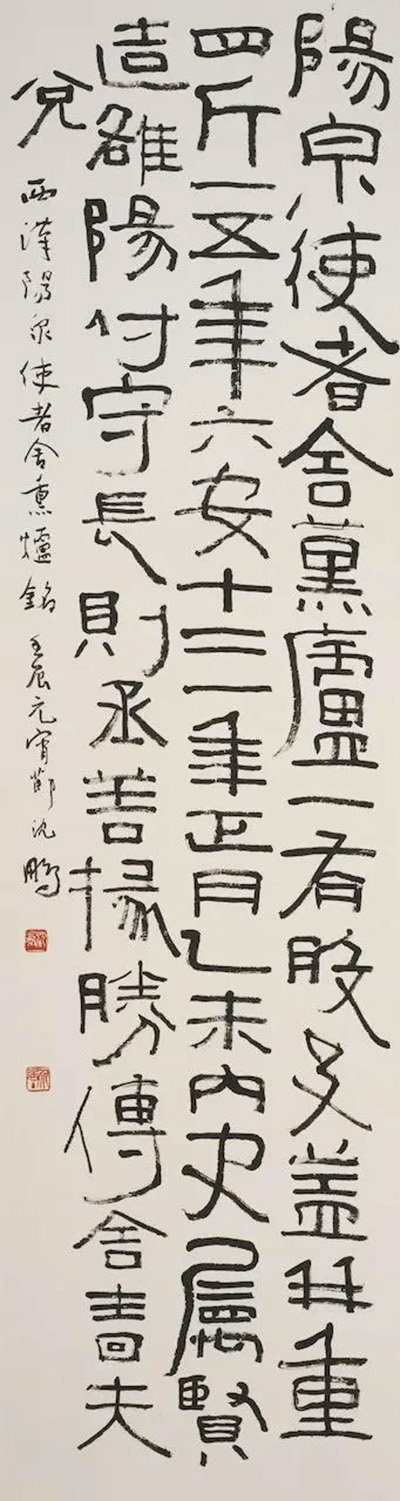 陽泉使者舍薰廬一有股及蓋并重
四斤一五年六安十三年正月乙未內史屬賢
造雒陽付守長則丞善掾勝傳舍嗇夫
兌
西漢陽泉使者舍熏爐銘 壬辰元宵節沈鵬